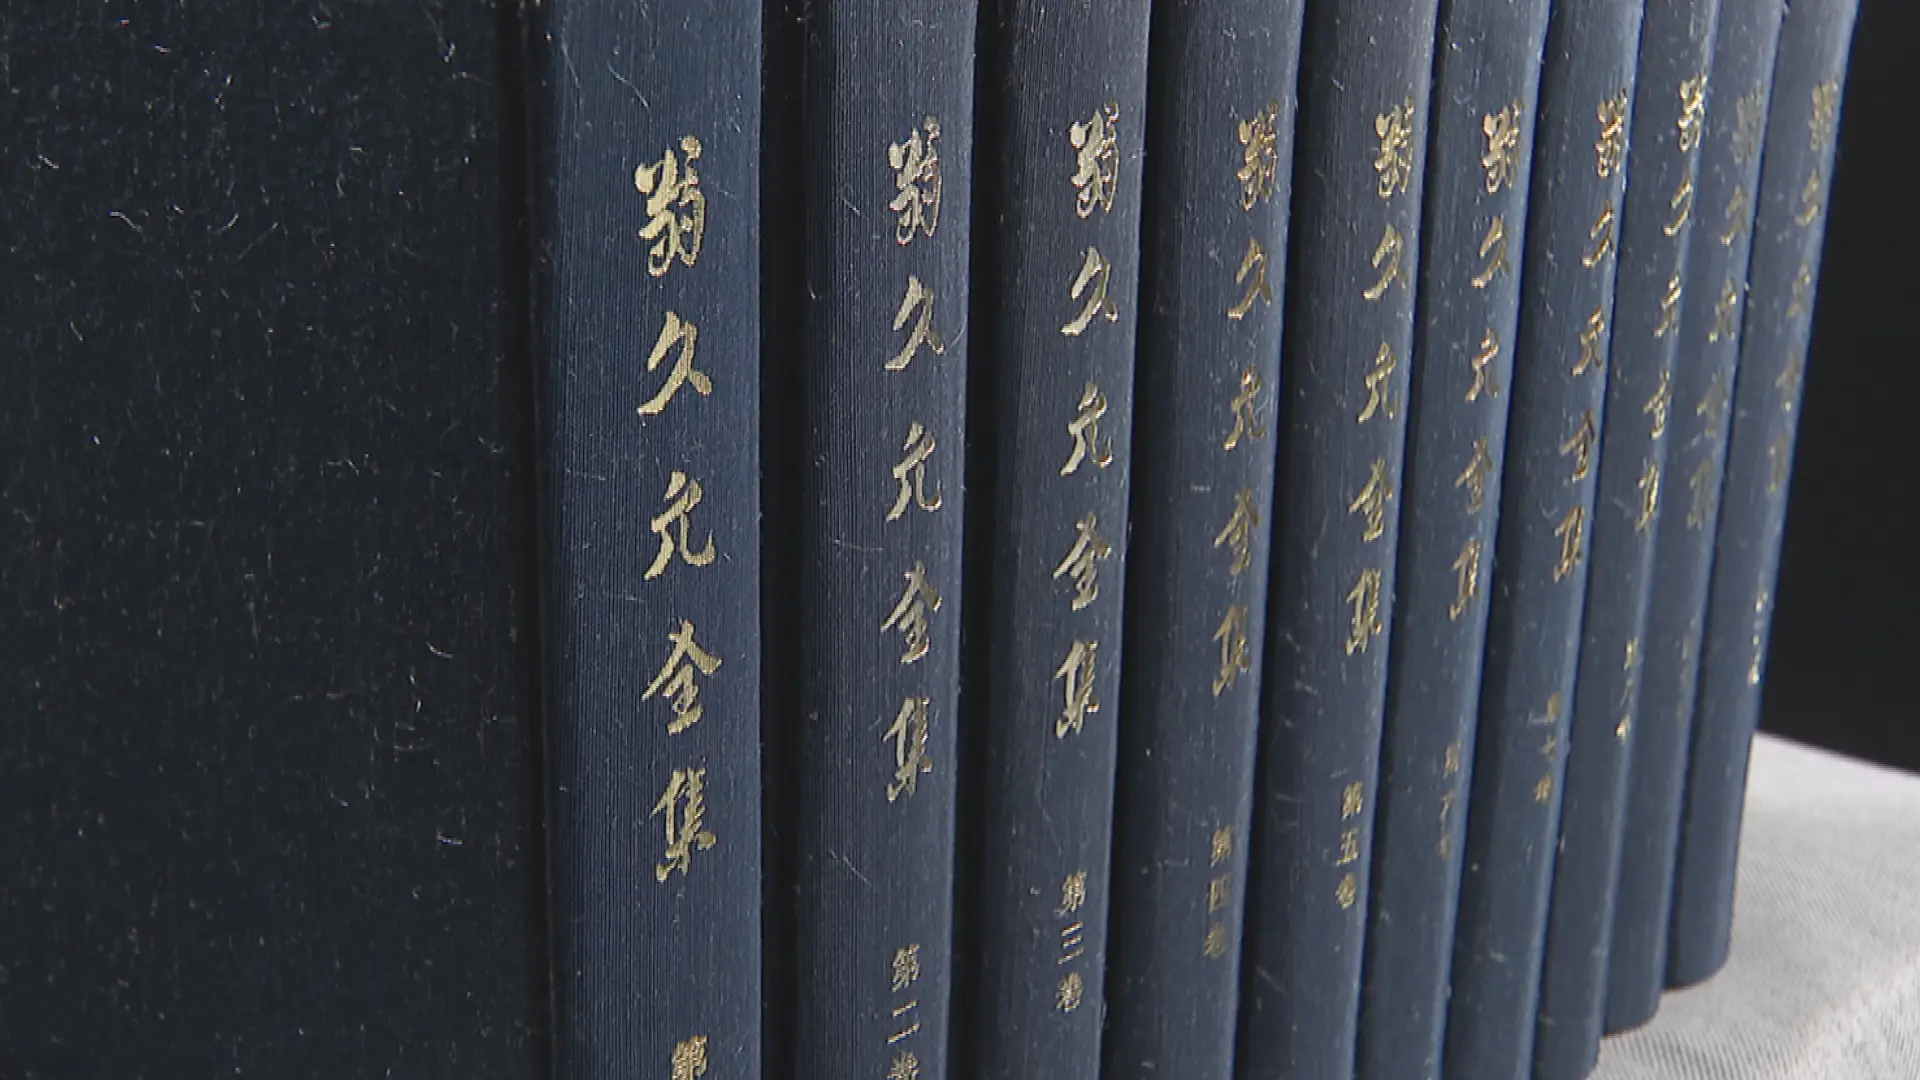 翁久允全集
第
翁久允全集
第二巻
翁久允全集
第三巻
翁久允全集
第四巻
翁久允全集
第五巻
翁久允全集
第六巻
翁久允全集
第七巻
翁久允全集
第八巻
翁久允全集
翁久允全集